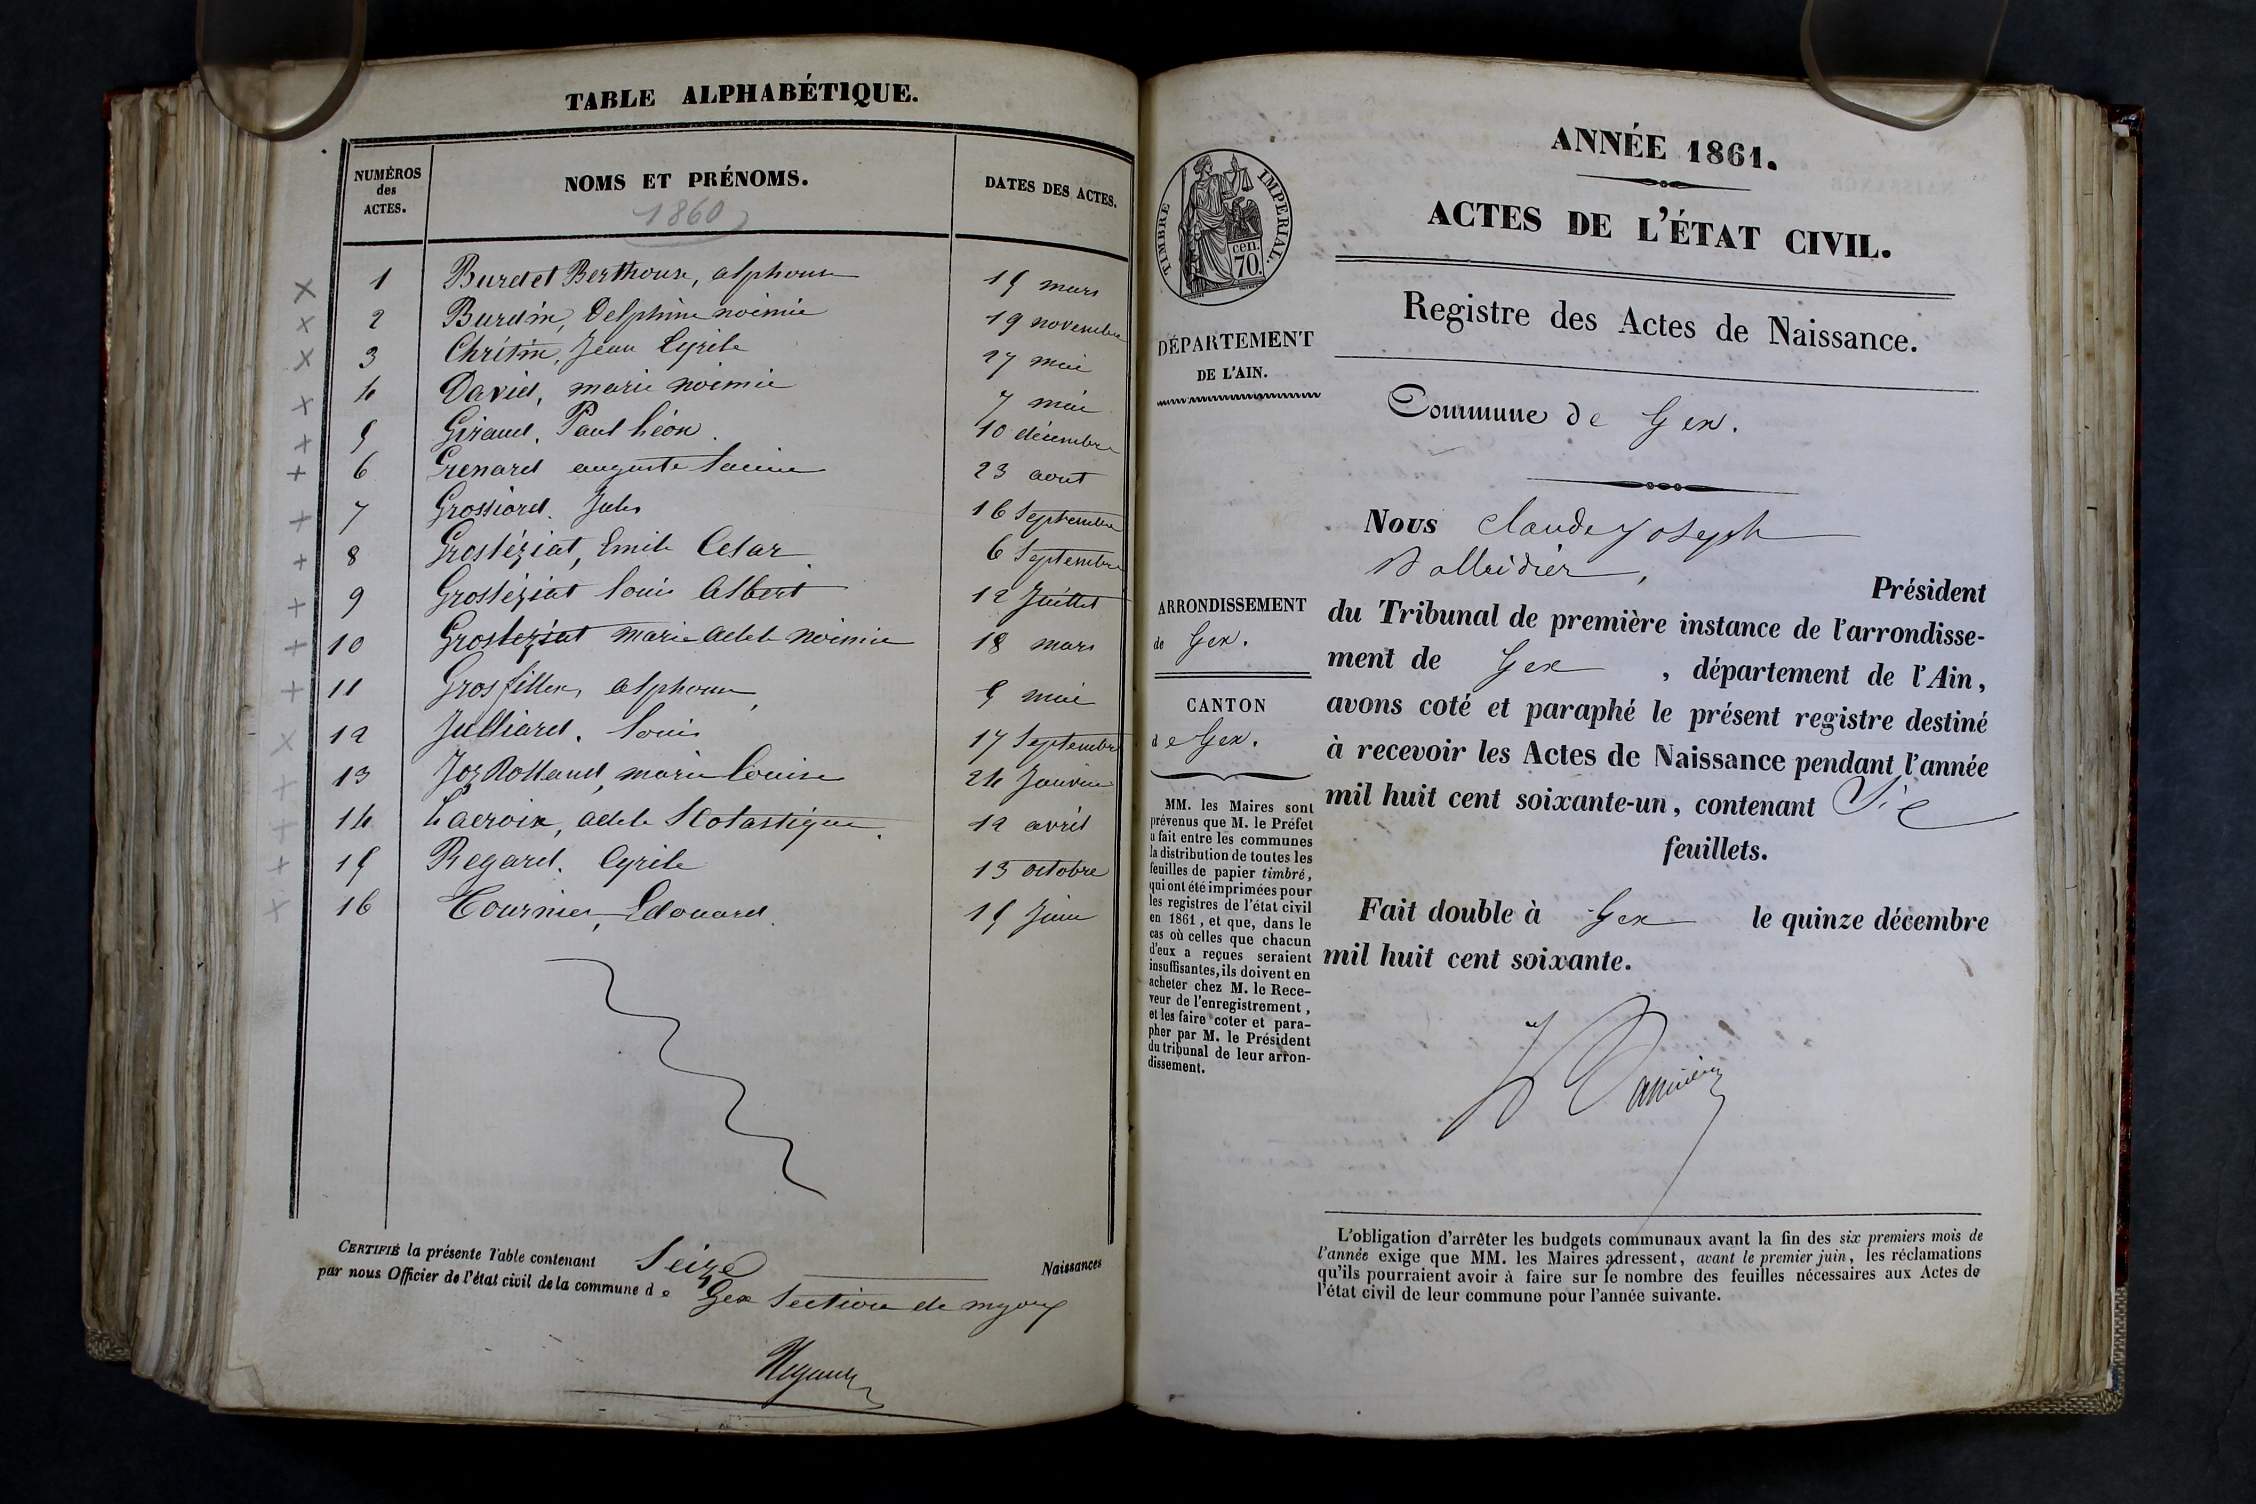 TABLE ALPHABÉTIQUE.
NUMÉROS
des
ACTES.
NOMS ET PRÉNOMS.
1860
DATES DES ACTES.
1 Burdet Berthoux, alphonse 15 mars
2 Burdin, Delphine noémie 19 novembre
3 Chrétin, Jean Cyrile 27 mai
4 David, marie noémie 7 mai
5 Giraud, Paul Léon. 10 décembre
6 Grenard auguste 23 aout
7 Grossiord. Jules 16 Septembre
8 Grostéziat, Emile Cesar 6 Septembre
9 Grostéziat Louis Albert 12 Juillet
10 Grosteziat marie adele noémie 18 mars
11 Grosfillex, alphonse, 5 mai
12 Julliard. Louis 17 Septembre
13 Joz Rolland, marie Louise 24 Janvier
14 Lacroix, adele Scolastique. 12 avril
15 Regard. Cyrile 13 octobre
16 Tournier, Edouard. 15 Juin
CERTIFIÉ la présente Table contenant Seize Naissances
par nous Officier de l'état civil de la commune de Gex Section de
ANNÉE 1861.
ACTES DE L'ÉTAT CIVIL.
Registre des Actes de Naissance.
TIMBRE IMPERIAL.
cen.
70
DÉPARTEMENT
DE L'AIN.
Commune de Gex.
Nous Claude Joseph
Président
du Tribunal de première instance de l'arrondisse-
ment de Gex , département de l'Ain,
avons coté et paraphé le présent registre destiné
à recevoir les Actes de Naissance pendant l'année
mil huit cent soixante-un, contenant
feuillets.
Fait double à Gex le quinze décembre
mil huit cent soixante.
ARRONDISSEMENT
de Gex.
CANTON
de Gex.
MM. les Maires sont
prévenus que M. le Préfet
a fait entre les communes
la distribution de toutes les
feuilles de papier timbré,
qui ont été imprimées pour
les registres de l'état civil
en 1861, et que, dans le
cas où celles que chacun
d'eux a reçues seraient
insuffisantes, ils doivent en
acheter chez M. le Rece-
veur de l'enregistrement,
et les faire coter et para-
pher par M. le Président
du tribunal de leur arron-
dissement.
L'obligation d'arrêter les budgets communaux avant la fin des six premiers mois de
l'année exige que MM. les Maires adressent, avant le premier juin, les réclamations
qu'ils pourraient avoir à faire sur le nombre des feuilles nécessaires aux Actes de
l'état civil de leur commune pour l'année suivante.